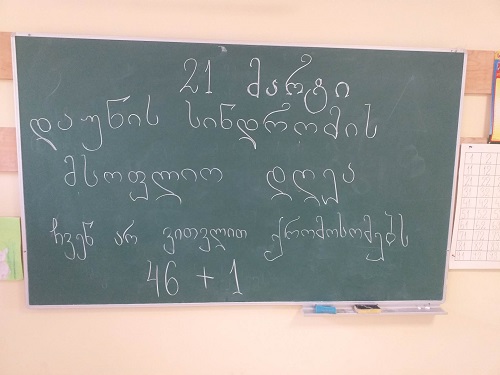 21 მარტი
დაუნის სინდრომის
მსოფლიო დღეა
ჩვენ არ ვითვლით ქრომოსომებს
46 + 1